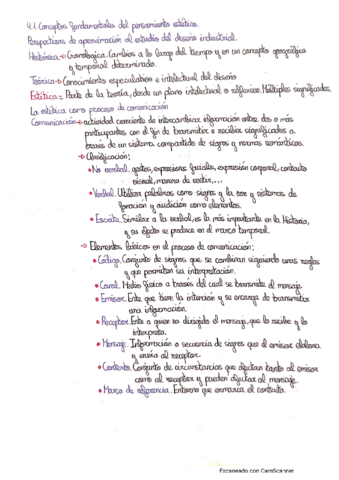 4.1. Conceptos fundamentales del pensamiento estético.
Perspectivas de aproximación al estudio del diseño industrial.
Histórica → Cronológica. Cambios a lo largo del tiempo y en un concepto geográfico
y temporal determinado.
Teórica → Conocimiento especulativo e intelectual del diseño
Estética = Parte de la teoría, desde un plano intelectual o reflexivo. Múltiples significados.
La estética como proceso de comunicación
Comunicación → actividad consciente de intercambiar información entre dos o más
participantes con el fin de transmitir o recibir significados a
través de un sistema compartido de signos y normas semánticas.
→ Clasificación:
• No verbal. gestos, expresiones faciales, expresión corporal, contacto
visual, manera de vestir,...
• Verbal. Utiliza palabras como signos y la voz y sistemas de
fonación y audición como elementos.
• Escrita. Similar a la verbal, es la más importante en la Historia,
y su efecto se produce en el marco temporal.
→ Elementos básicos en el proceso de comunicación:
• Código. Conjunto de signos que se combinan siguiendo unas reglas
y que permiten su interpretación.
• Canal. Medio físico a través del cual se transmite el mensaje.
• Emisor. Ente que tiene la intención y se encarga de transmitir
una información.
• Receptor. Ente a quien va dirigido el mensaje, que lo recibe y lo
interpreta.
• Mensaje. Información o secuencia de signos que el emisor elabora
y envía al receptor.
• Contexto. Conjunto de circunstancias que afectan tanto al emisor
como al receptor y pueden afectar al mensaje.
• Marco de referencia. Entorno que enmarca el contexto.
Escaneado con CamScanner